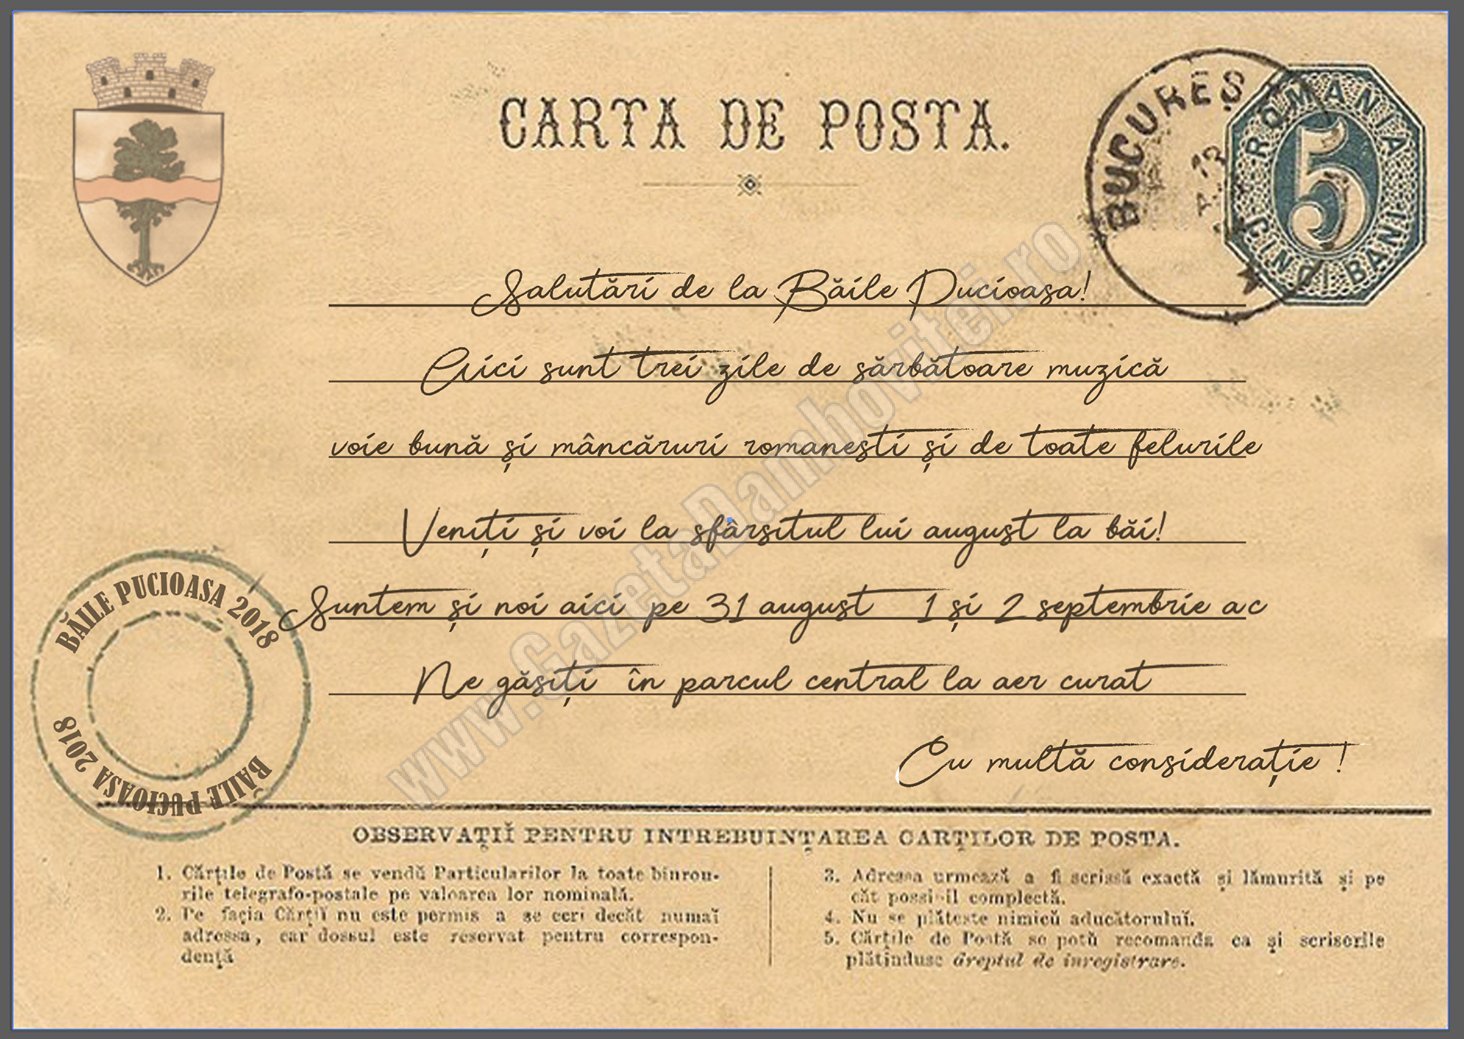 CARTA DE POSTA.
BUCUREȘ
ROMANIA
5
CINCI BANI
Salutări de la Băile Pucioasa!
Aici sunt trei zile de sărbătoare muzică
voie bună și mâncăruri romanești și de toate felurile
Veniți și voi la sfârșitul lui august la băi!
Suntem și noi aici pe 31 august 1 și 2 septembrie a c
Ne găsiți în parcul central la aer curat
Cu multă considerație !
www.GazetaDambovitei.ro
BĂILE PUCIOASA 2018
BĂILE PUCIOASA 2018
OBSERVAȚIĬ PENTRU INTREBUINȚAREA CARȚILOR DE POSTA.
1. Cărțile de Postă se vendŭ Particularilor la toate biurou-
rile telegrafo-postale pe valoarea lor nominală.
2. Pe facia Cărțiĭ nu este permis a se scri decât numaĭ
adressa, ear dossul este reservat pentru correspon-
dență
3. Adressa urmează a fi scrissă exactă și lămurită și pe
cât possibil complectă.
4. Nu se plătește nimicŭ aducătoruluĭ.
5. Cărțile de Postă se potŭ recomanda ca și scrisorile
plătinduse dreptul de inregistrare.